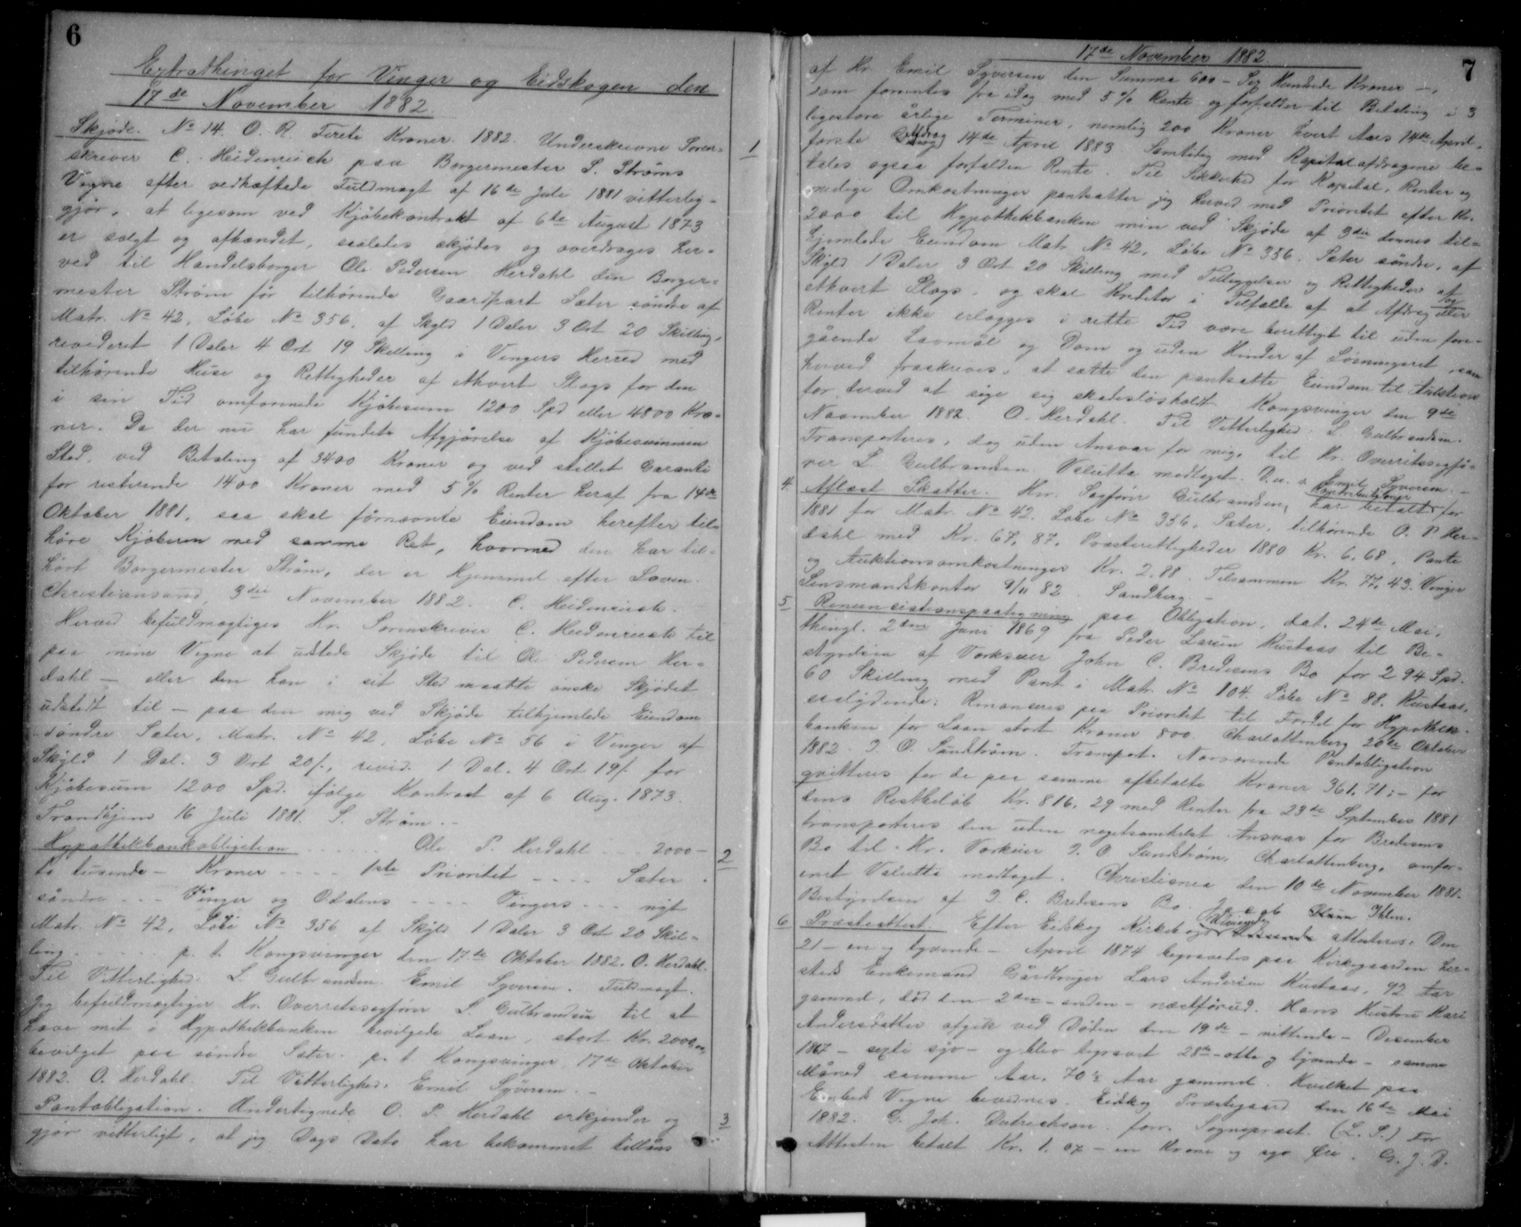 6
Extrathinget for Vinger og Eidskogen den
17de November 1882
Skjøde. No 14. O. R. Fireti Kroner. 1882. Underskrevne Soren-
skriver C. Heidenreich paa Borgermester S. Strøms
Vegne efter vedhæftede Fuldmagt af 16de Juli 1881 vitterlig-
gjør, at ligesom ved Kjøbekontrakt af 6te August 1873
er solgt og afhændet, saaledes skjødes og overdrages her-
ved til Handelsborger Ole Pedersen Herdahl den Borger-
mester Strøm før tilhørende Gaardpart Sater søndre af
Matr. No 42, Løbe No 356, af Skyld 1 Daler 3 Ort 20 Skilling,
revideret 1 Daler 4 Ort 19 Skilling i Vingers Herred med
tilhørende Huse og Rettigheder af Athvert Slags for den
i sin Tid omforenede Kjøbesum 1200 Spd eller 4800 Kro-
ner. Da der nu har fundets Afgjørelse af Kjøbesummen
Sted, ved Betaling af 3400 Kroner og ved stillet Garanti
for resterende 1400 Kroner med 5 % Renter heraf fra 14de
Oktober 1881, saa skalførnævnte Eiendom herefter til-
høre Kjøberen med samme Ret, hvormed den har til-
hørt Borgermester Strøm, der er Hjemmel efter Loven.
Christianssand, 3die November 1882. C. Heidenreich.
Herved befuldmægtiges Hr. Sorenskriver C. Heidenreich til
paa mine Vegne at udstede Skjøde til Ole Pedersen Her-
dahl — eller den han i sit Sted maatte ønske Skjødet
udstedt til — paa den mig ved Skjøde tilhjemlede Eiendom
søndre Sater, Matr. No 42, Løbe No 56 i Vinger af
Skyld 1 Dal. 3 Ort 20/-, revid. 1 Dal. 4 Ort 19/- for
Kjøbesum 1200 Spd. ifølge Kontrakt af 6 Aug. 1873.
Trondhjem 16 Juli 1881. S. Strøm.
Hypothekbankobligation ..... Ole P. Herdahl ... 2000 —
to tusende — Kroner .... 1ste Prioritet .... Sater
søndre ... Vinger og Odalens .... Vingers ... nyt
Matr. No 42, Løbe No 356 af Skyld 1 Daler 3 Ort 20 Skil-
ling. ..... p. t. Kongsvinger den 17de Oktober 1882. O. Herdahl.
Til Vitterlighed: L. Gulbrandsen. Emil Syversen. Fuldmagt.
Jeg befuldmægtiger Hr. Overretssagfører L. Gulbrandsen til at
hæve mit i Hypothekbanken bevilgede Laan, stort Kr. 2000,00
bevilget paa søndre Sater. p. t. Kongsvinger 17de Oktober
1882. O. Herdahl. Til Vitterlighed: Emil Syversen.
Pantobligation. Undertegnede O. P. Herdahl erkjender og
gjør vitterligt, at jeg Dags Dato har bekommet tillaans
1
2
3
17de November 1882
7
af Hr. Emil Syversen den Summa 600 — Sex Hundrede Kroner —,
som forrentes fra idag med 5 % Rente og forfalder til Betaling i 3
ligestore årlige Terminer, nemlig 200 Kroner hvert Aars 14de April,
første Afdrag 14de April 1883. Samtidig med Kapitalafdragene be-
tales ogsaa forfalden Rente. Til Sikkerhed for Kapital, Renter og
mulige Omkostninger pantsætter jeg herved med Prioritet efter Kr.
2000 til Hypothekbanken min ved Skjøde af 3die dennes til-
hjemlede Eiendom Matr. No 42, Løbe No 356, Sater søndre, af
Skyld 1 Daler 3 Ort 20 Skilling med Tilliggelser og Rettigheder af
ethvert Slags, og skal Kreditor i Tilfælde af at Afdrag og eller
Renter ikke erlægges i rette Tid være berettiget til uden fore-
gående Lovmål og Dom og uden Hinder af Løsningsret, som
herved fraskrives, at sætte den pantsatte Eiendom til Auktion
for derved at søge sig skadesløsholdt. Kongsvinger den 9de
November 1882. O. Herdahl. Til Vitterlighed: L. Gulbrandsen.
Transporteres, dog uden Ansvar for mig, til Hr. Overretssagfø-
rer L. Gulbrandsen. Valutta modtaget. D. u. s. Emil Syversen.
4 Aflæst Skatter. Hr. Sagfører Gulbrandsen, Kongsvinger har betalt for
1881 for Matr. No 42, Løbe No 356, Sater, tilhørende O. P. Her-
dahl med Kr. 67,87, Præsterettigheder 1880 Kr. 6,68, Pante
og Auktionsomkostninger Kr. 2,88. Tilsammen Kr. 77,43. Vinger
Lensmandskontor 9/11 82. Sandberg —
5 Renunciationspaategning paa Obligation, dat. 24de Mai,
thingl. 2den Juni 1869 fra Peder Larsen Kustaas til Be-
styrelsen af Værkseier John C. Bredesens Bo for 294 Spd.
60 Skilling med Pant i Matr. No 104 Løbe No 88, Kustaas,
saalydende: Renonceres paa Prioritet til Fordel for Hypothek-
banken for Laan stort Kroner 800. Charlottenberg 20de Oktober
1882. J. O. Sundstrøm. Transport. Nærværende Pantobligation
qvitteres for de paa samme afbetalte Kroner 361,71; — for
dens Restbeløb Kr. 816,29 med Renter fra 28de September 1881
transporteres den uden nogetsomhelst Ansvar for Bredesens
Bo til Hr. Værkeier J. O. Sundstrøm, Charlottenberg, omfor-
enet Valutta modtaget. Christiania den 10de November 1881.
Bestyrelsen af J. C. Bredesens Bo. Jacob Thun Ihlen.
6 Præsteattest. Efter Eidskog Kirkebog attesteres: Den
21 — en og tyvende — April 1874 begravedes paa Kirkegaarden her-
steds Enkemand Gårdbruger Lars Andersen Kustaas, 92 Aar
gammel, død den 2den — anden — næstførud. Hans Hustru Kari
Andersdatter afgik ved Døden den 19de — nittende — December
1867 — sexti syv — og blev begravet 28de — otte og tyvende — samme
Måned samme Aar, 70½ Aar gammel. Hvilket paa
Embeds Vegne bevidnes. Eidskog Præstegaard den 16de Mai
1882. G. Joh. Dietrichson. fung. Sognepræst. (L. S.) For
Attesten betalt Kr. 1.07 — en Krone og syv Øre. G. J. D.